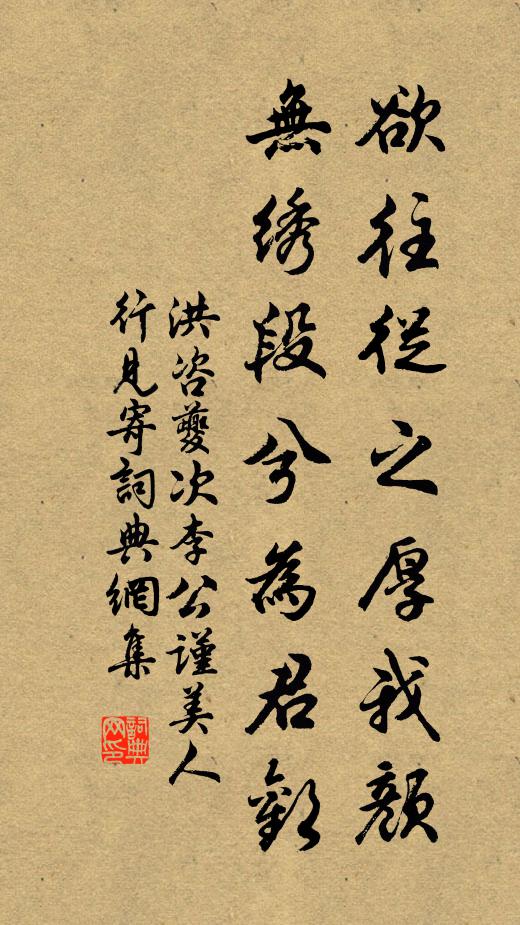 欲往從之厚我顏
無綉段兮為君
洪咨夔次李公謹美人
行見寄詞典網集
詞典
网印